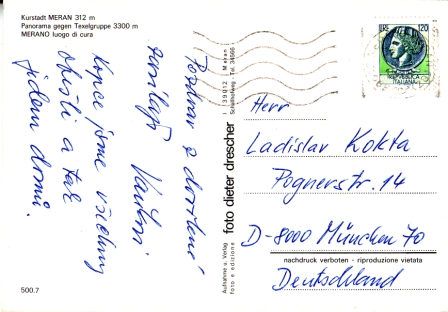 Kurstadt MERAN 312 m
Panorama gegen Texelgruppe 3300 m
MERANO luogo di cura
Pozdrav z dovolené
zasílají
Kopce jsme všechny
obešli a tak
jedem domů.
500.7
Aufnahme u. Verlag
foto e edizione
foto dieter drescher
I 39012 Meran
Tel. 34566
LIRE 120
REPUBBLICA
ITALIANA
Herr
Ladislav Kokta
Pognerstr. 14
D-8000 München 70
nachdruck verboten - riproduzione vietata
Deutschland